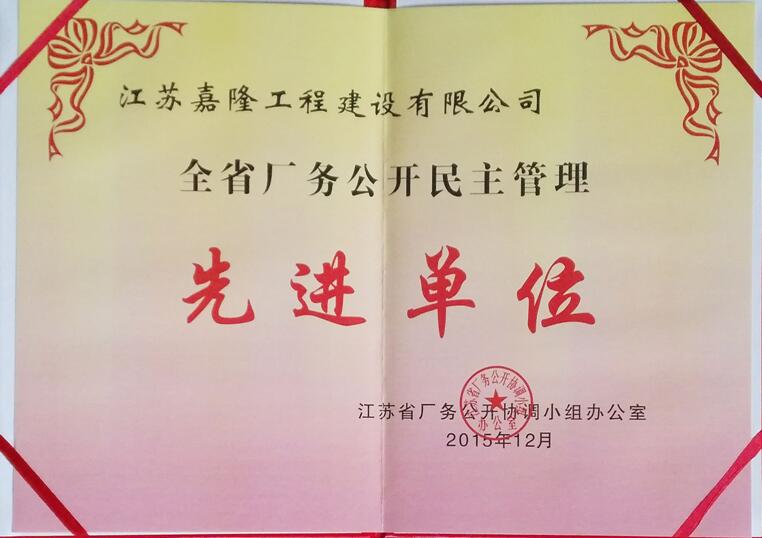 江苏嘉隆工程建设有限公司
全省厂务公开民主管理
先进单位
江苏省厂务公开协调小组办公室
2015年12月
江苏省厂务公开协调小组
办公室